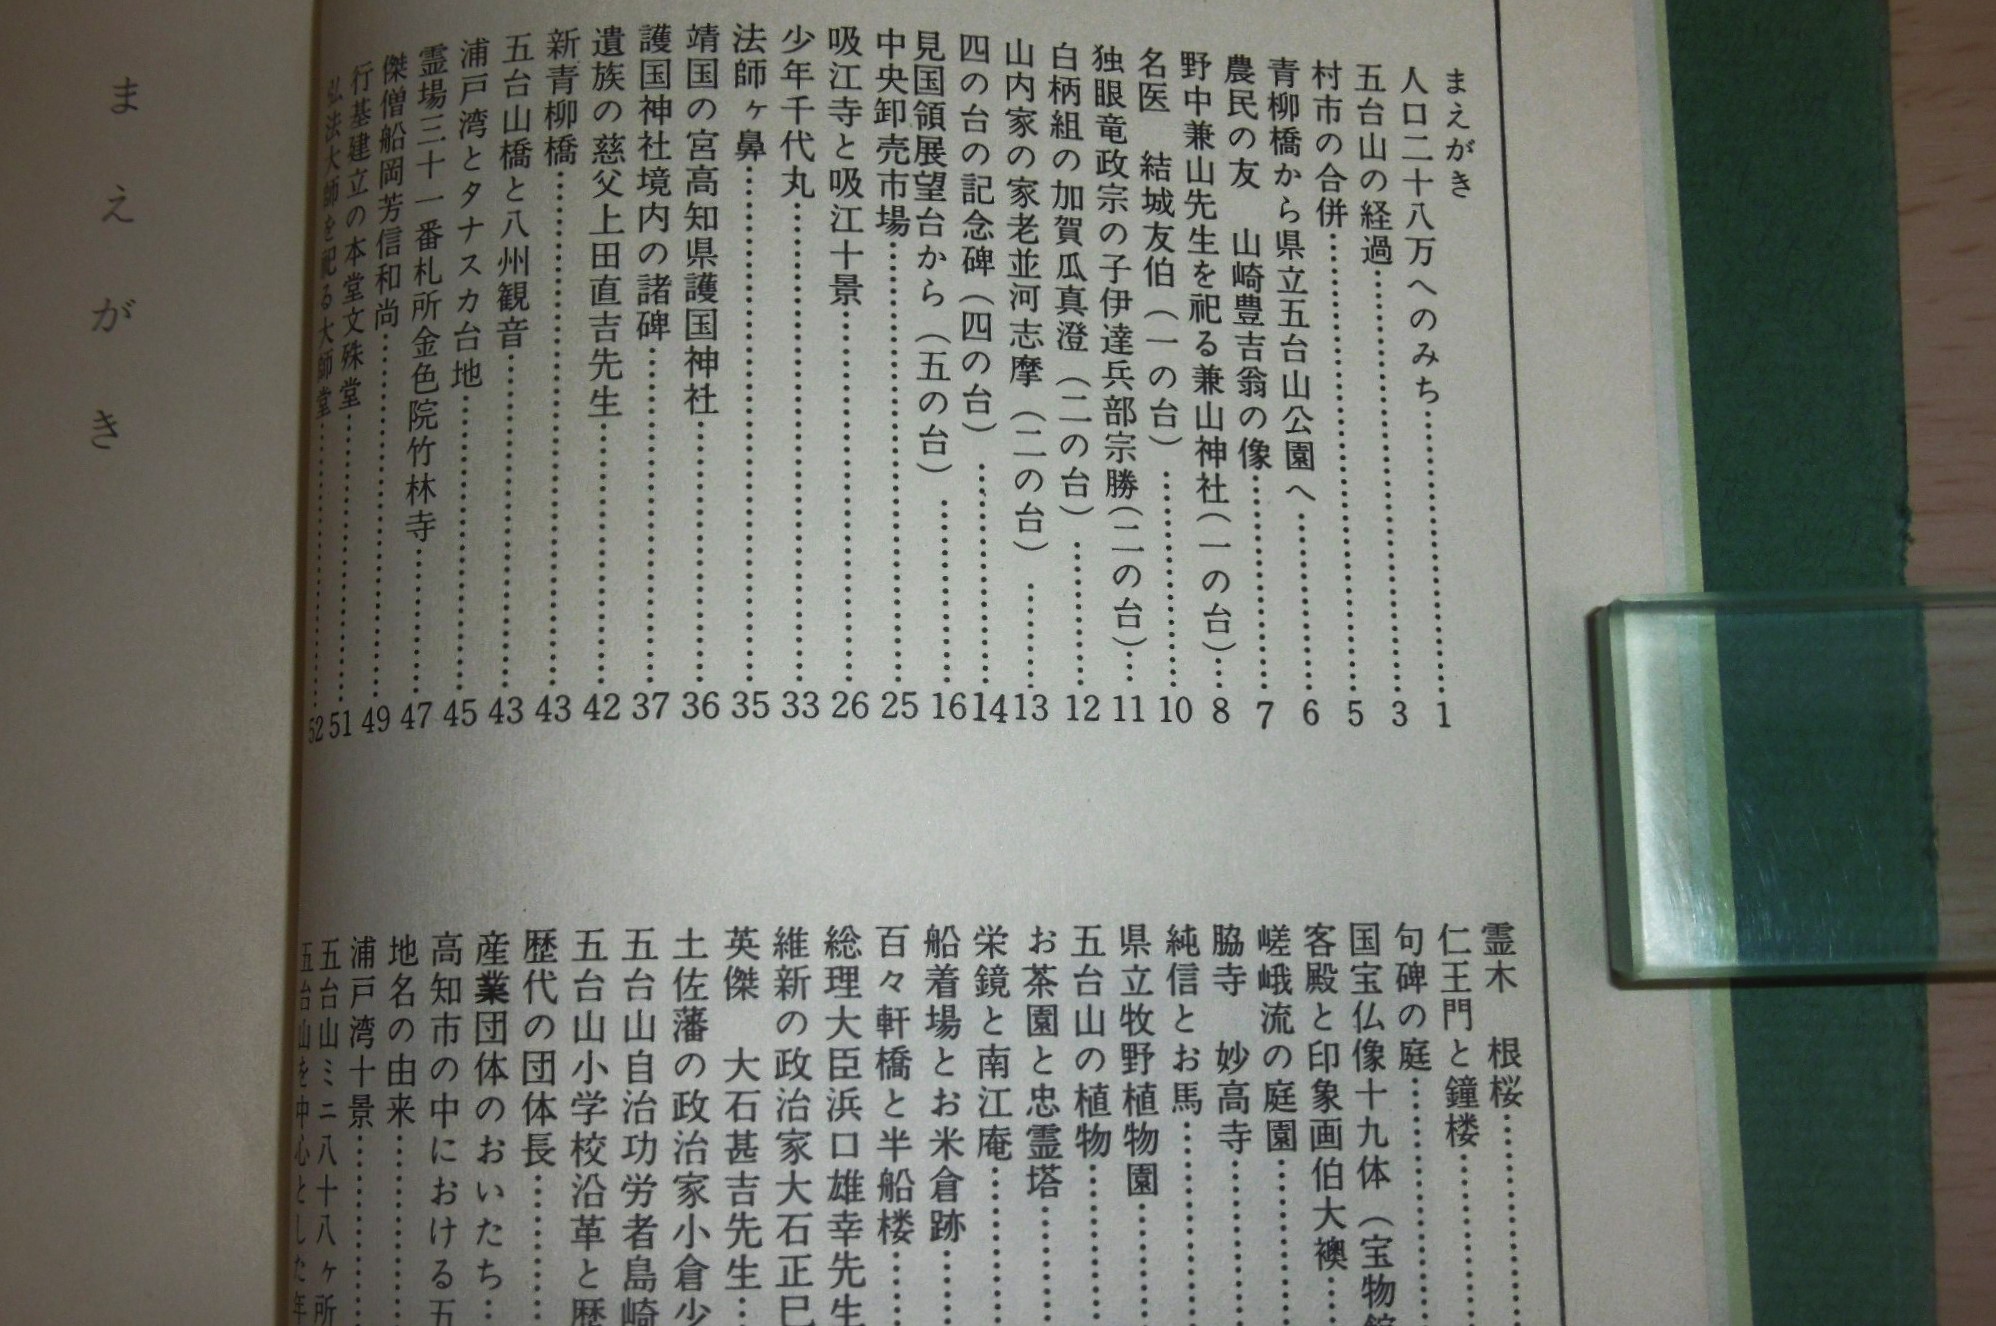 まえがき
人口二十八万へのみち……1
五台山の経過……3
村市の合併……5
青柳橋から県立五台山公園へ……6
農民の友　山崎豊吉翁の像……7
野中兼山先生を祀る兼山神社(一の台)……8
名医　結城友伯(一の台)……10
独眼竜政宗の子伊達兵部宗勝(二の台)……11
白柄組の加賀瓜真澄(二の台)……12
山内家の家老並河志摩(二の台)……13
四の台の記念碑(四の台)……14
見国領展望台から(五の台)……16
中央卸売市場……25
吸江寺と吸江十景……26
少年千代丸……33
法師ヶ鼻……35
靖国の宮高知県護国神社……36
護国神社境内の諸碑……37
遺族の慈父上田直吉先生……42
新青柳橋……43
五台山橋と八州観音……43
浦戸湾とタナスカ台地……45
霊場三十一番札所金色院竹林寺……47
傑僧船岡芳信和尚……49
行基建立の本堂文殊堂……51
弘法大師を祀る大師堂……52
霊木　根桜……
仁王門と鐘楼……
句碑の庭……
国宝仏像十九体(宝物館
客殿と印象画伯大襖……
嵯峨流の庭園……
脇寺　妙高寺……
純信とお馬……
県立牧野植物園……
五台山の植物……
お茶園と忠霊塔……
栄鏡と南江庵……
船着場とお米倉跡……
百々軒橋と半船楼……
総理大臣浜口雄幸先生
維新の政治家大石正巳
英傑　大石甚吉先生……
土佐藩の政治家小倉少
五台山自治功労者島崎
五台山小学校沿革と歴
歴代の団体長……
産業団体のおいたち……
高知市の中における五
地名の由来……
浦戸湾十景……
五台山ミニ八十八ヶ所
五台山を中心とした年
まえがき